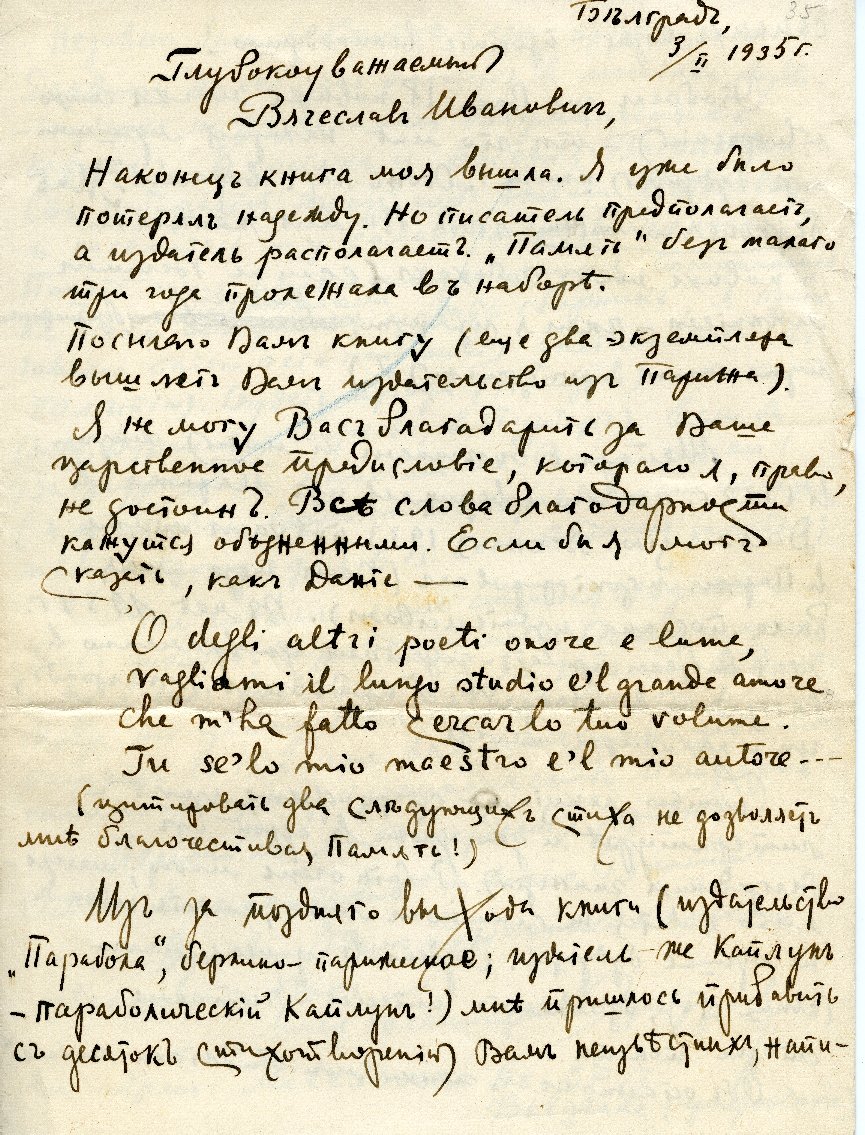 35
Бѣлградъ,
3/II 1935 г.
Глубокоуважаемый
Вячеславъ Ивановичъ,
Наконецъ книга моя вышла. Я уже было
потерялъ надежду. Но писатель предполагаетъ,
а издатель располагаетъ. „Память“ безъ малаго
три года пролежала въ наборѣ.
Посылаю Вамъ книгу (еще два экземпляра
вышлетъ Вамъ издательство изъ Парижа).
Я не могу Васъ благодарить за Ваше
царственное предисловіе, котораго я, право,
не достоинъ. Всѣ слова благодарности
кажутся обѣдненными. Если бы я могъ
сказать, какъ Данте —
O degli altri poeti onore e lume,
vagliami il lungo studio e'l grande amore
che m'ha fatto cercar lo tuo volume.
Tu se' lo mio maestro e'l mio autore ---
(цитировать два слѣдующихъ стиха не дозволяетъ
мнѣ благочестивая Память!)
Изъ за поздняго выхода книги (издательство
„Парабола“, берлино-парижское; издатель-же Каплунъ
- параболическій Каплунъ!) мнѣ пришлось прибавить
съ десятокъ стихотвореній Вамъ неизвѣстныхъ, напи-